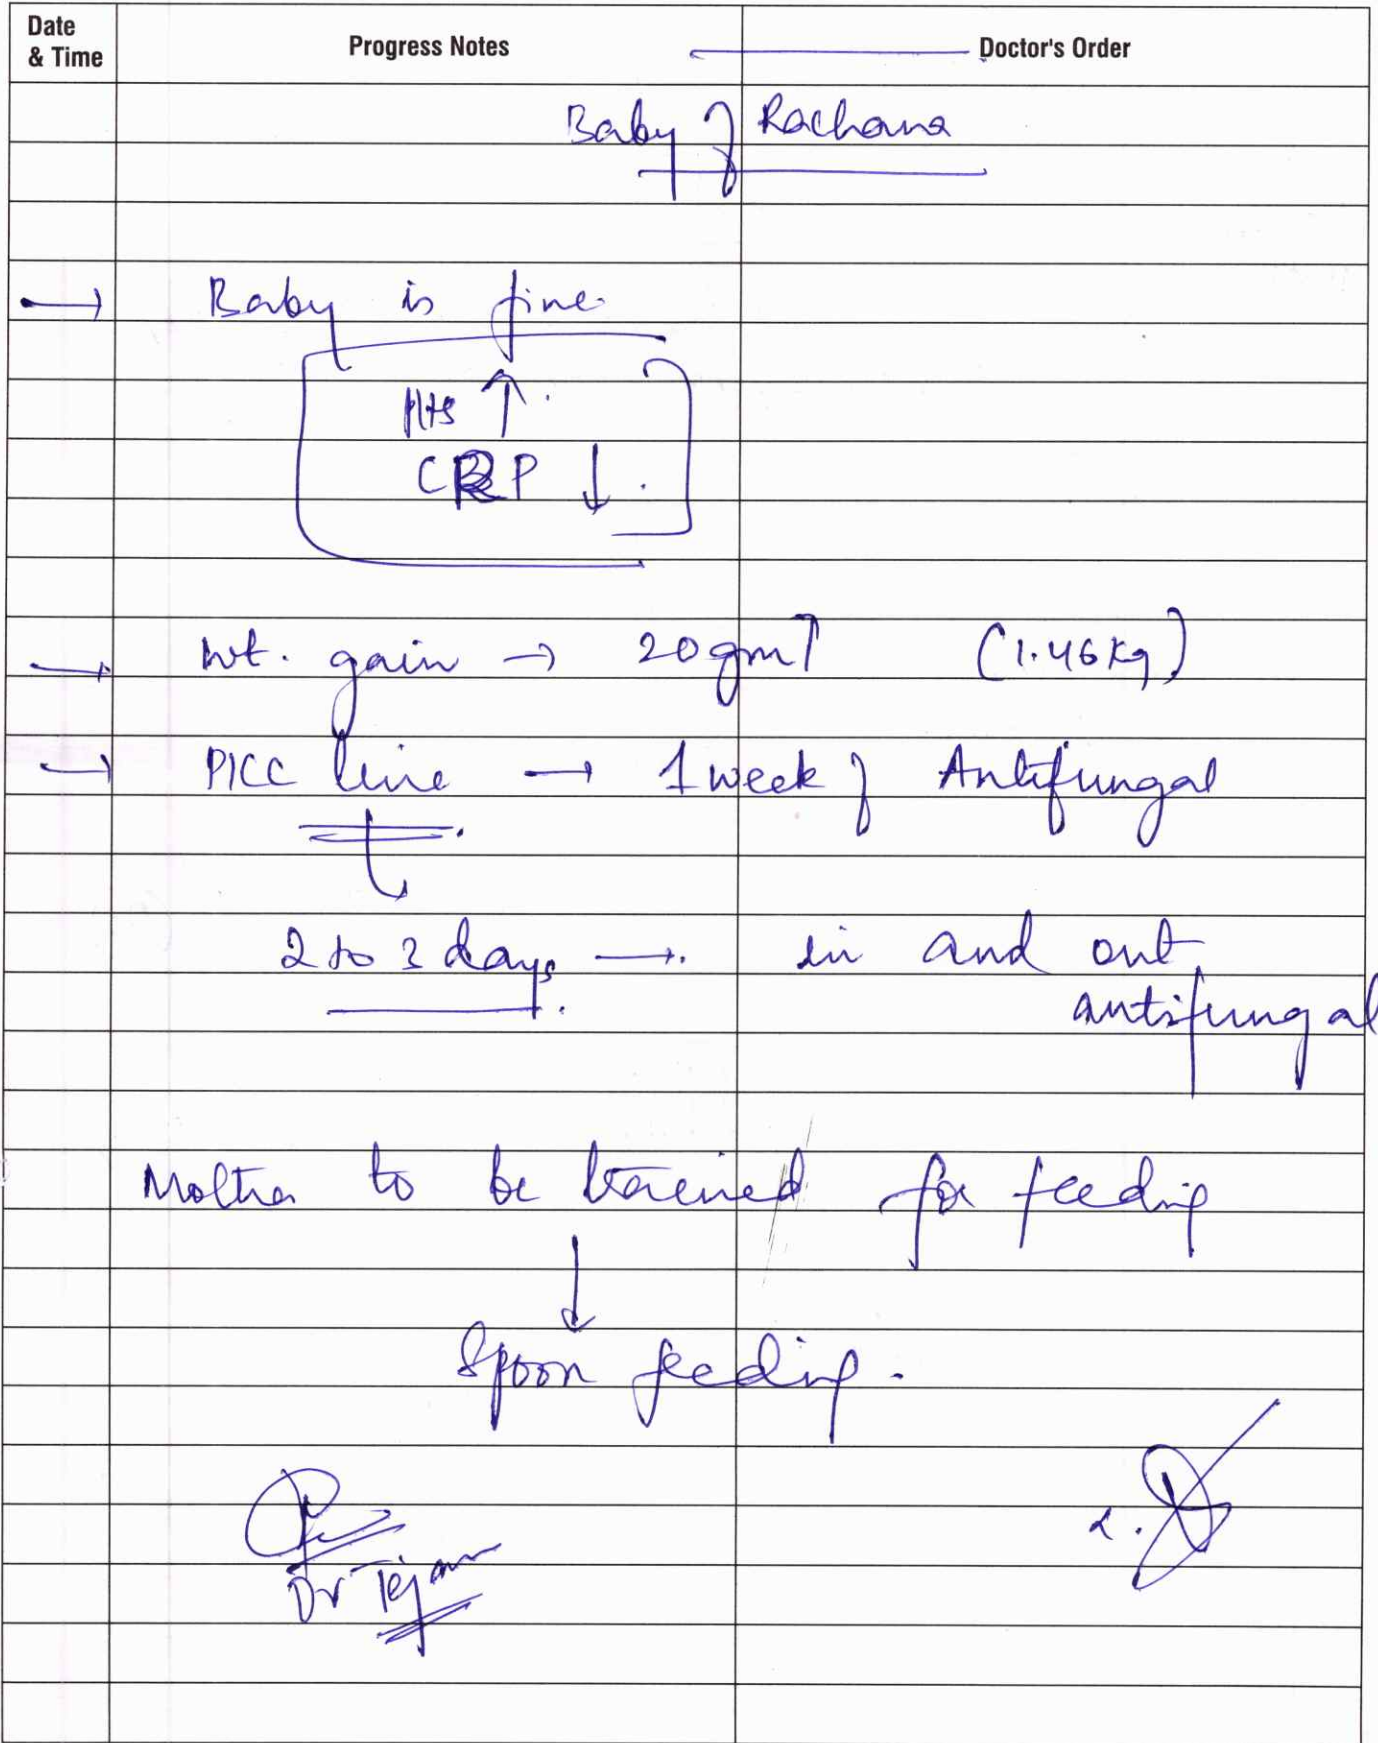 Date & Time Progress Notes Doctor's Order
Baby of Rachana
→ Baby is fine.
↑.
CRP ↓.
→ wt. gain → 20gm↑ (1.46kg)
→ PICC line → 1 week of Antifungal
2 to 3 days. →. in and out
antifungal
Mother to be trained for feeding
↓
Spoon feeding.
Dr